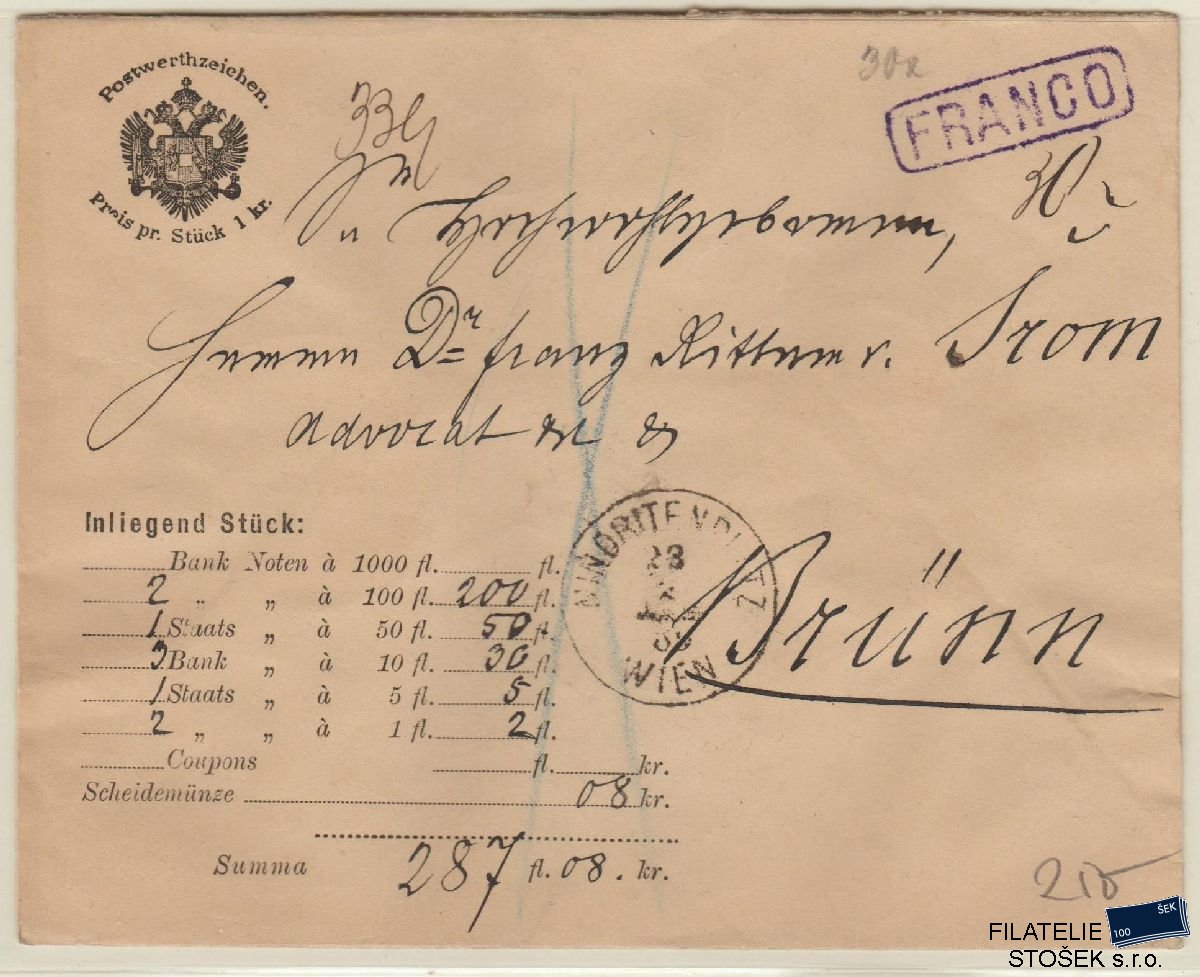 Postwerthzeichen.
Preis pr. Stück 1 kr.
30x
FRANCO
30
Hochwohlgeboren,
Herrn Dr Franz Ritter v. Srom
Advocat etc etc
Brünn
MINORITENPLATZ
23
WIEN
Inliegend Stück:
Bank Noten à 1000 fl. fl.
2 „ „ à 100 fl. 200 fl.
1 Staats „ à 50 fl. 50 fl.
3 Bank „ à 10 fl. 30 fl.
1 Staats „ à 5 fl. 5 fl.
2 „ „ à 1 fl. 2 fl.
Coupons fl. kr.
Scheidemünze 08 kr.
Summa 287 fl. 08. kr.
FILATELIE
STOŠEK s.r.o.
100
ŠEK